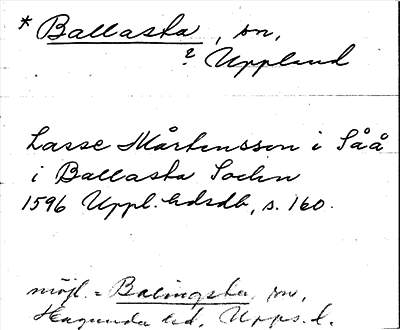 * Ballasta, sn,
? Uppland
Lasse Mårtensson i Såå
i Ballasta Sochn
1596 Uppl. hdsdb, s. 160.
möjl. = Balingsta sn,
Hagunda hd, Upps. l.